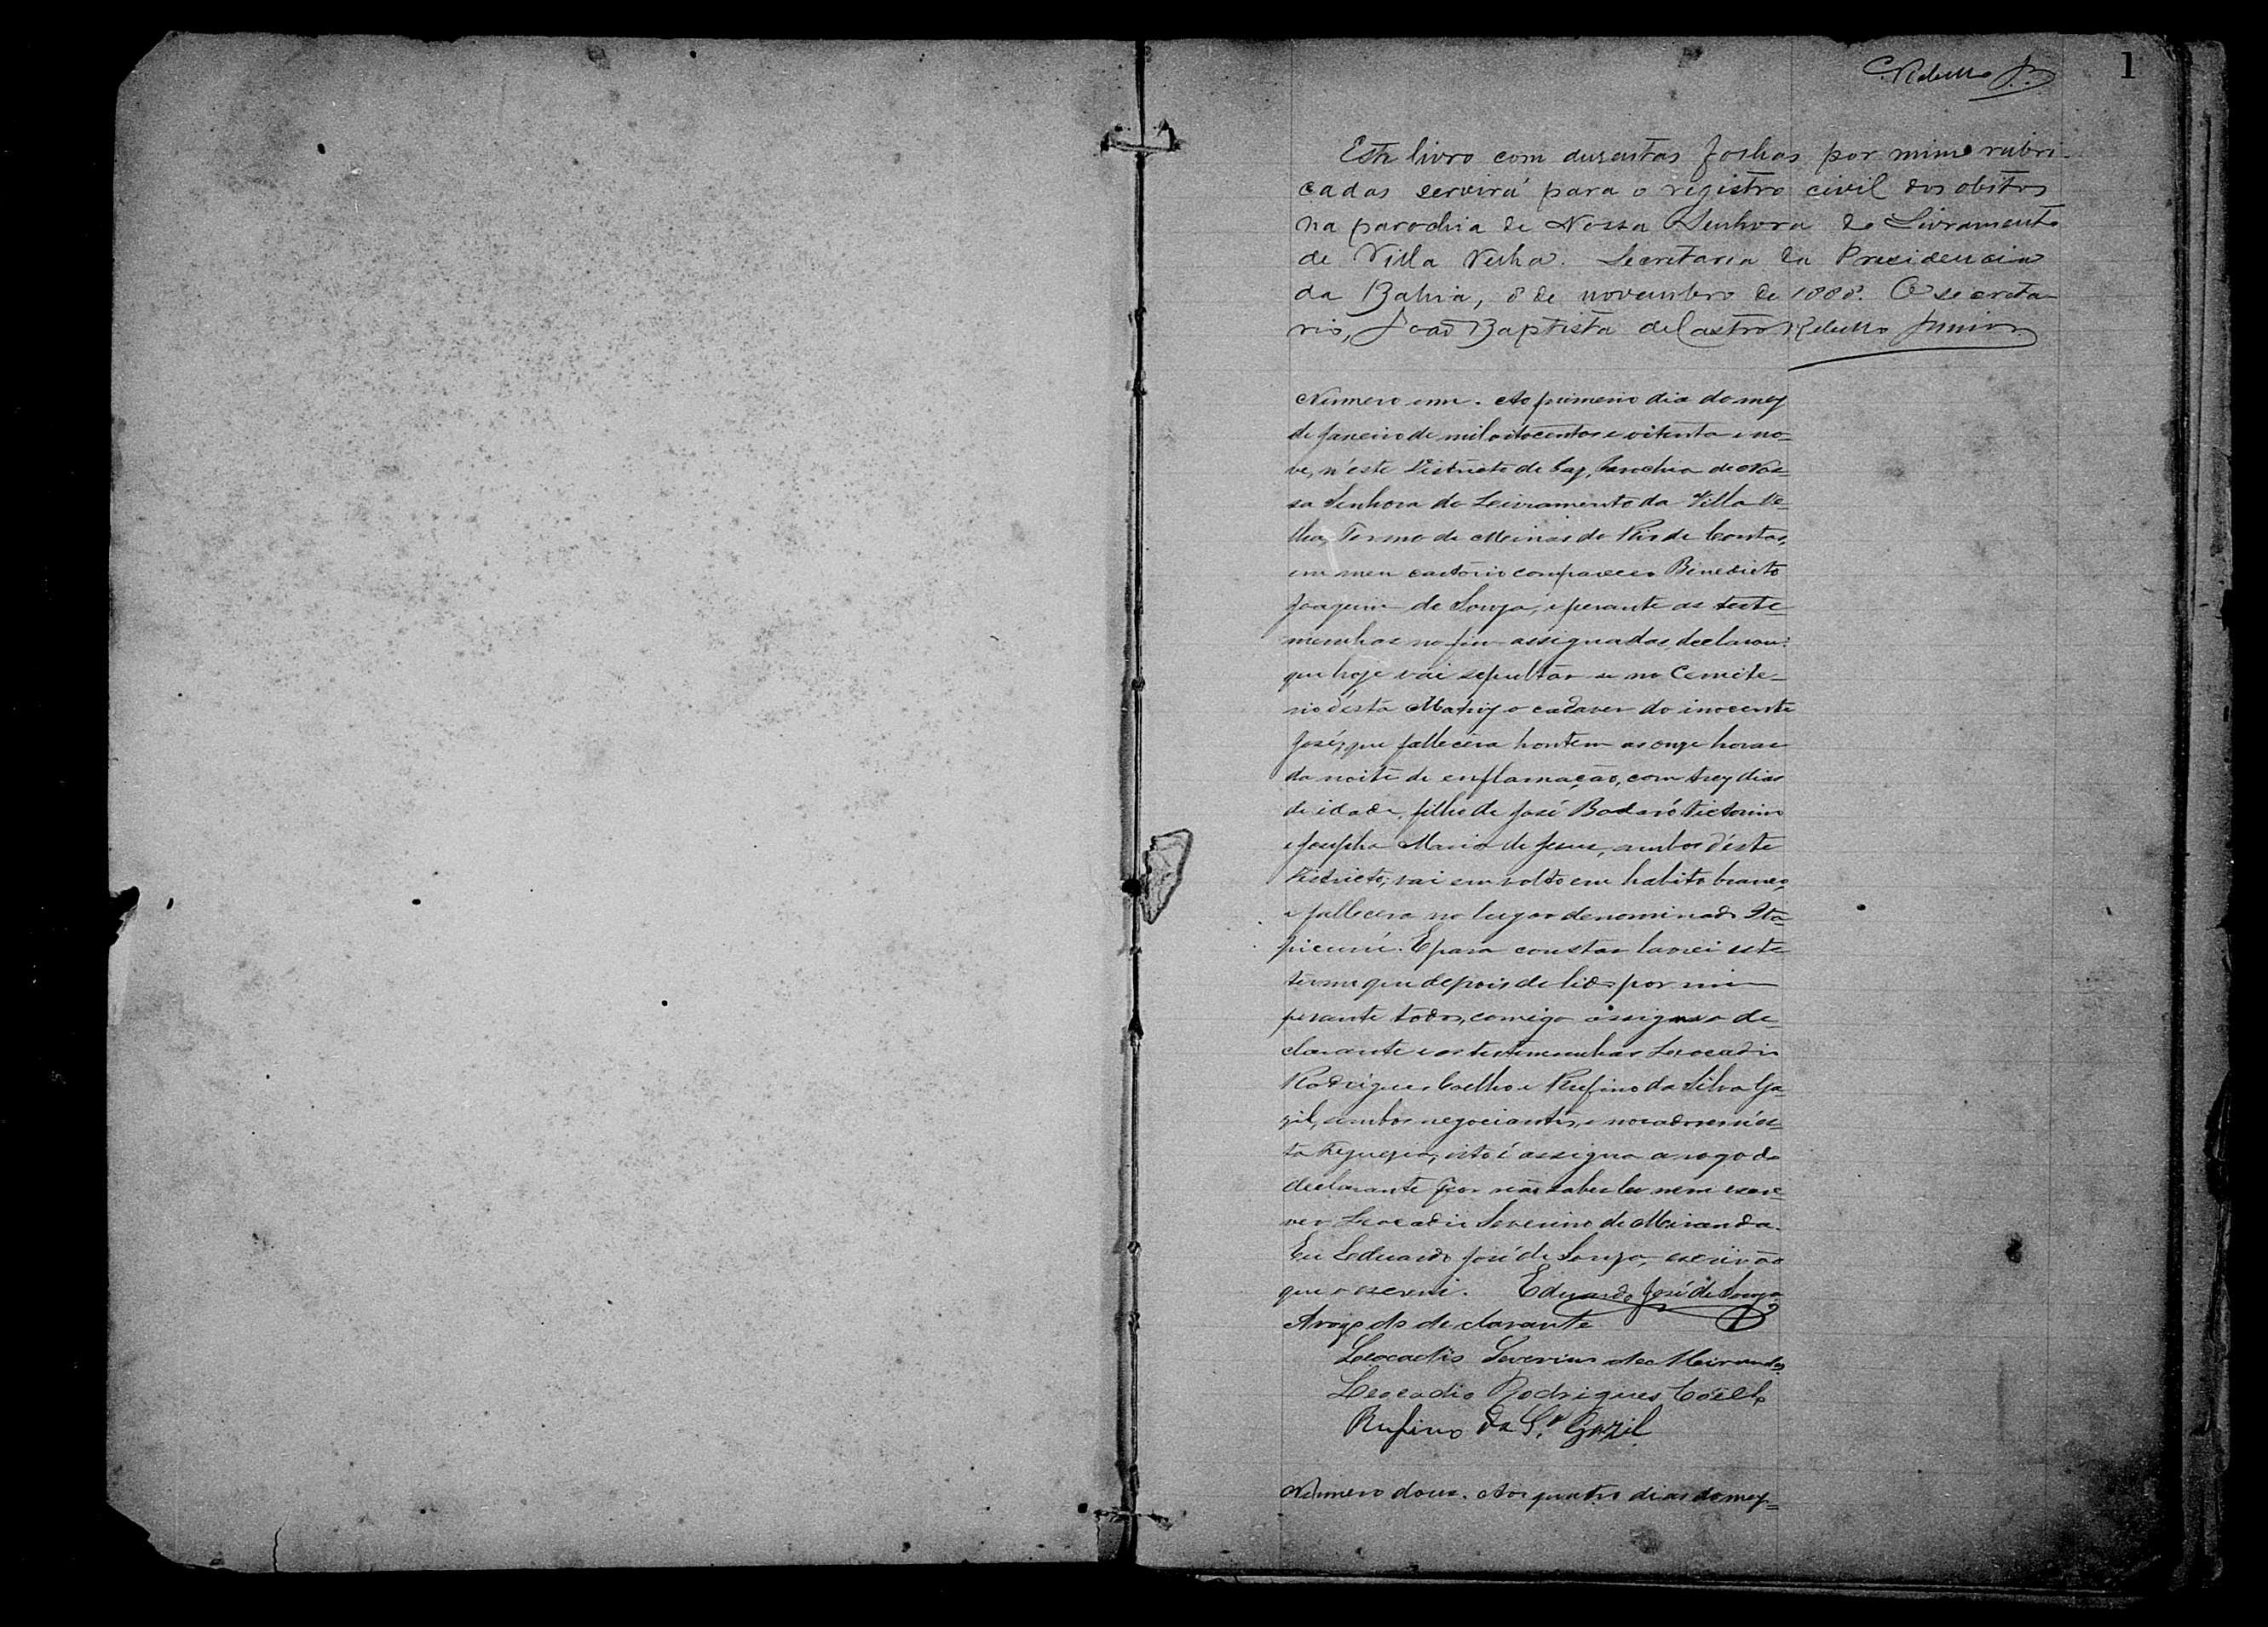 C. Rebello Jr.
1
Este livro com duzentas folhas por mim rubri-
cadas servirá para o registro civil dos obitos
na parochia de Nossa Senhora do Livramento
de Villa Velha. Secretaria da Presidencia
da Bahia, 8 de novembro de 1888. O secreta-
rio, João Baptista de Castro Rebello Junior
Numero um. Ao primeiro dia do mez
de Janeiro de mil oitocentos e oitenta e no-
ve, n'este Districto de Paz, Parochia de Nos-
sa Senhora do Livramento da Villa Ve-
lha, Termo de Minas do Rio de Contas,
em meu cartorio compareceo Benedicto
Joaquim de Souza, e perante as teste-
munhas no fim assignadas, declarou:
que hoje vai sepultar-se no Cemite-
rio desta Matriz o cadaver do inocente
José, que fallecêra hontem as onze horas
da noite de enflamação, com trez dias
de idade, filho de José Badaró Victorino
e Josepha Maria de Jesus, ambos d'este
Districto; vai em volto em habito branco,
e fallecera no lugar denominado Ita-
picurú. E para constar lavrei este
termo que depois de lido por mim
perante todos, comigo assigna o de-
clarante e as testemunhas Leocadio
Rodrigues Coelho e Rufino da Silva Ga-
zil, ambos negociantes, e moradores n'es-
ta Freguezia, isto é assigna a rogo do
declarante por não saber ler nem escre-
ver Leocadio Severino de Miranda.
Eu Eduardo José de Souza, escrivão
que o escrevi. Eduardo José de Souza
Arogo do declarante
Leocadio Severino de Miranda
Leocadio Rodrigues Coelho
Rufino da Sª Gazil
Numero dous. Aos quatro dias do mez-